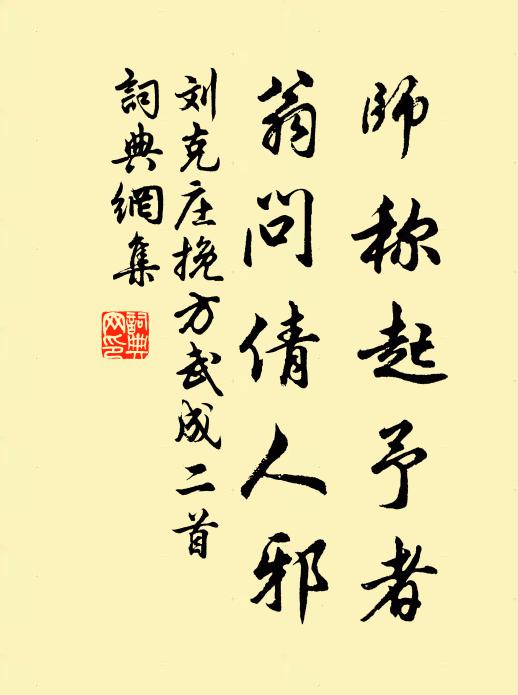 師称起予者
翁问倩人邪
刘克庄挽方武成二首
詞典網集
詞典
网印